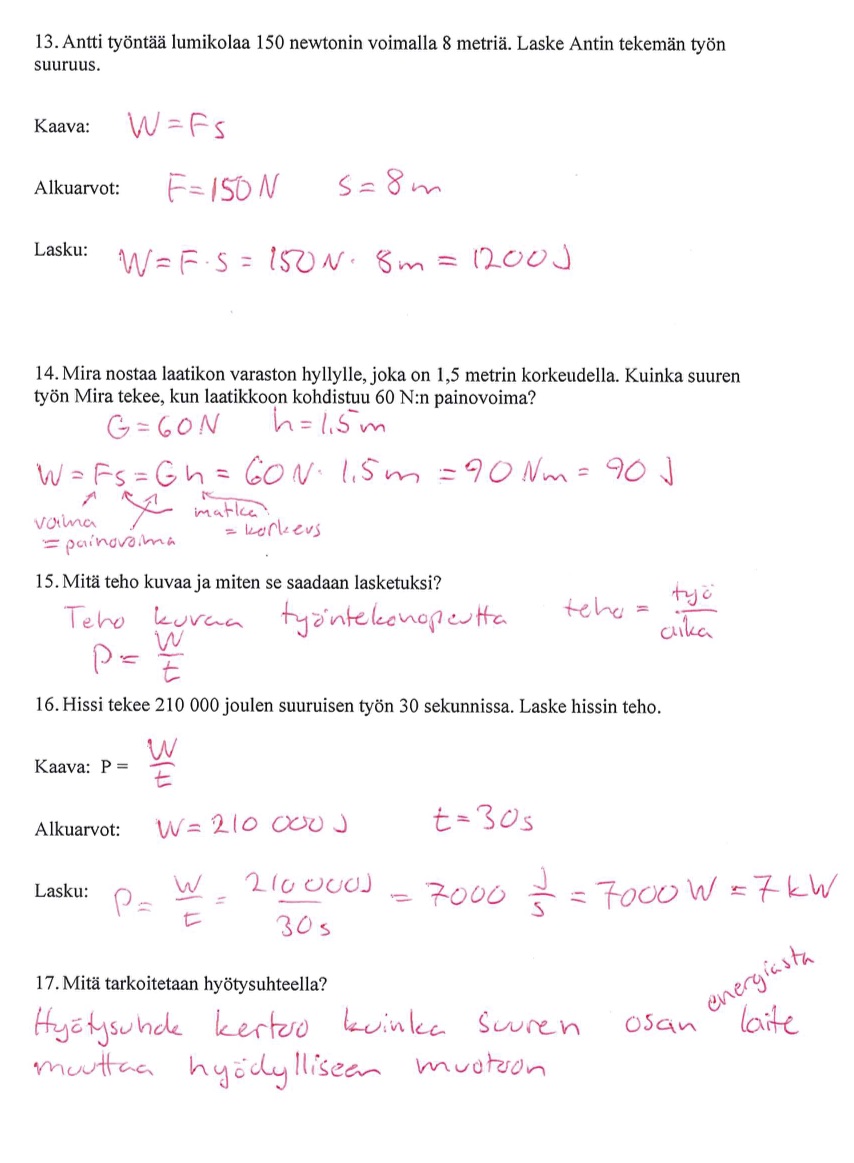 13. Antti työntää lumikolaa 150 newtonin voimalla 8 metriä. Laske Antin tekemän työn
suuruus.
Kaava: W = Fs
Alkuarvot: F = 150 N s = 8 m
Lasku: W = F · s = 150 N · 8 m = 1200 J
14. Mira nostaa laatikon varaston hyllylle, joka on 1,5 metrin korkeudella. Kuinka suuren
työn Mira tekee, kun laatikkoon kohdistuu 60 N:n painovoima?
G = 60 N h = 1,5 m
W = Fs = Gh = 60 N · 1,5 m = 90 Nm = 90 J
voima matka
= painovoima = korkeus
15. Mitä teho kuvaa ja miten se saadaan lasketuksi?
Teho kuvaa työntekonopeutta teho = työ/aika
P = W/t
16. Hissi tekee 210 000 joulen suuruisen työn 30 sekunnissa. Laske hissin teho.
Kaava: P = W/t
Alkuarvot: W = 210 000 J t = 30 s
Lasku: P = W/t = 210 000 J/30 s = 7000 J/s = 7000 W = 7 kW
17. Mitä tarkoitetaan hyötysuhteella?
Hyötysuhde kertoo kuinka suuren osan energiasta laite
muuttaa hyödylliseen muotoon